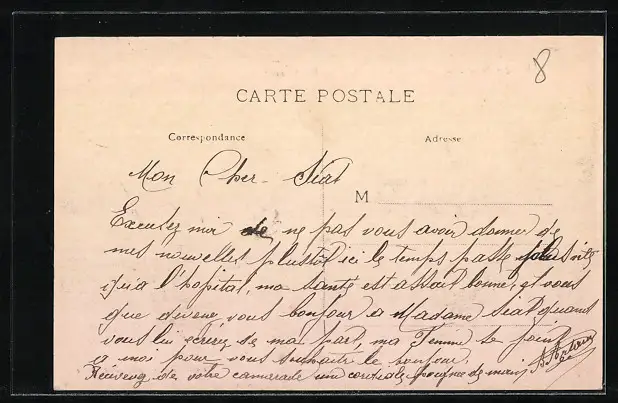 8
CARTE POSTALE
Correspondance
Adresse
Mon Cher Siat
M
Excusez mir de ne pas vous avoir donner de
mes nouvelles plustôt ici le temps passe plus vite
qu'a l'hopital, ma santé est assait bonne, et vous
que devene vous bonjour a Madame Siat quant
vous lui écrirez de ma part, ma Femme se joint
a moi pour vous souhaiter le bonjour.
Recevez de votre camarade une cordiale poignée de main